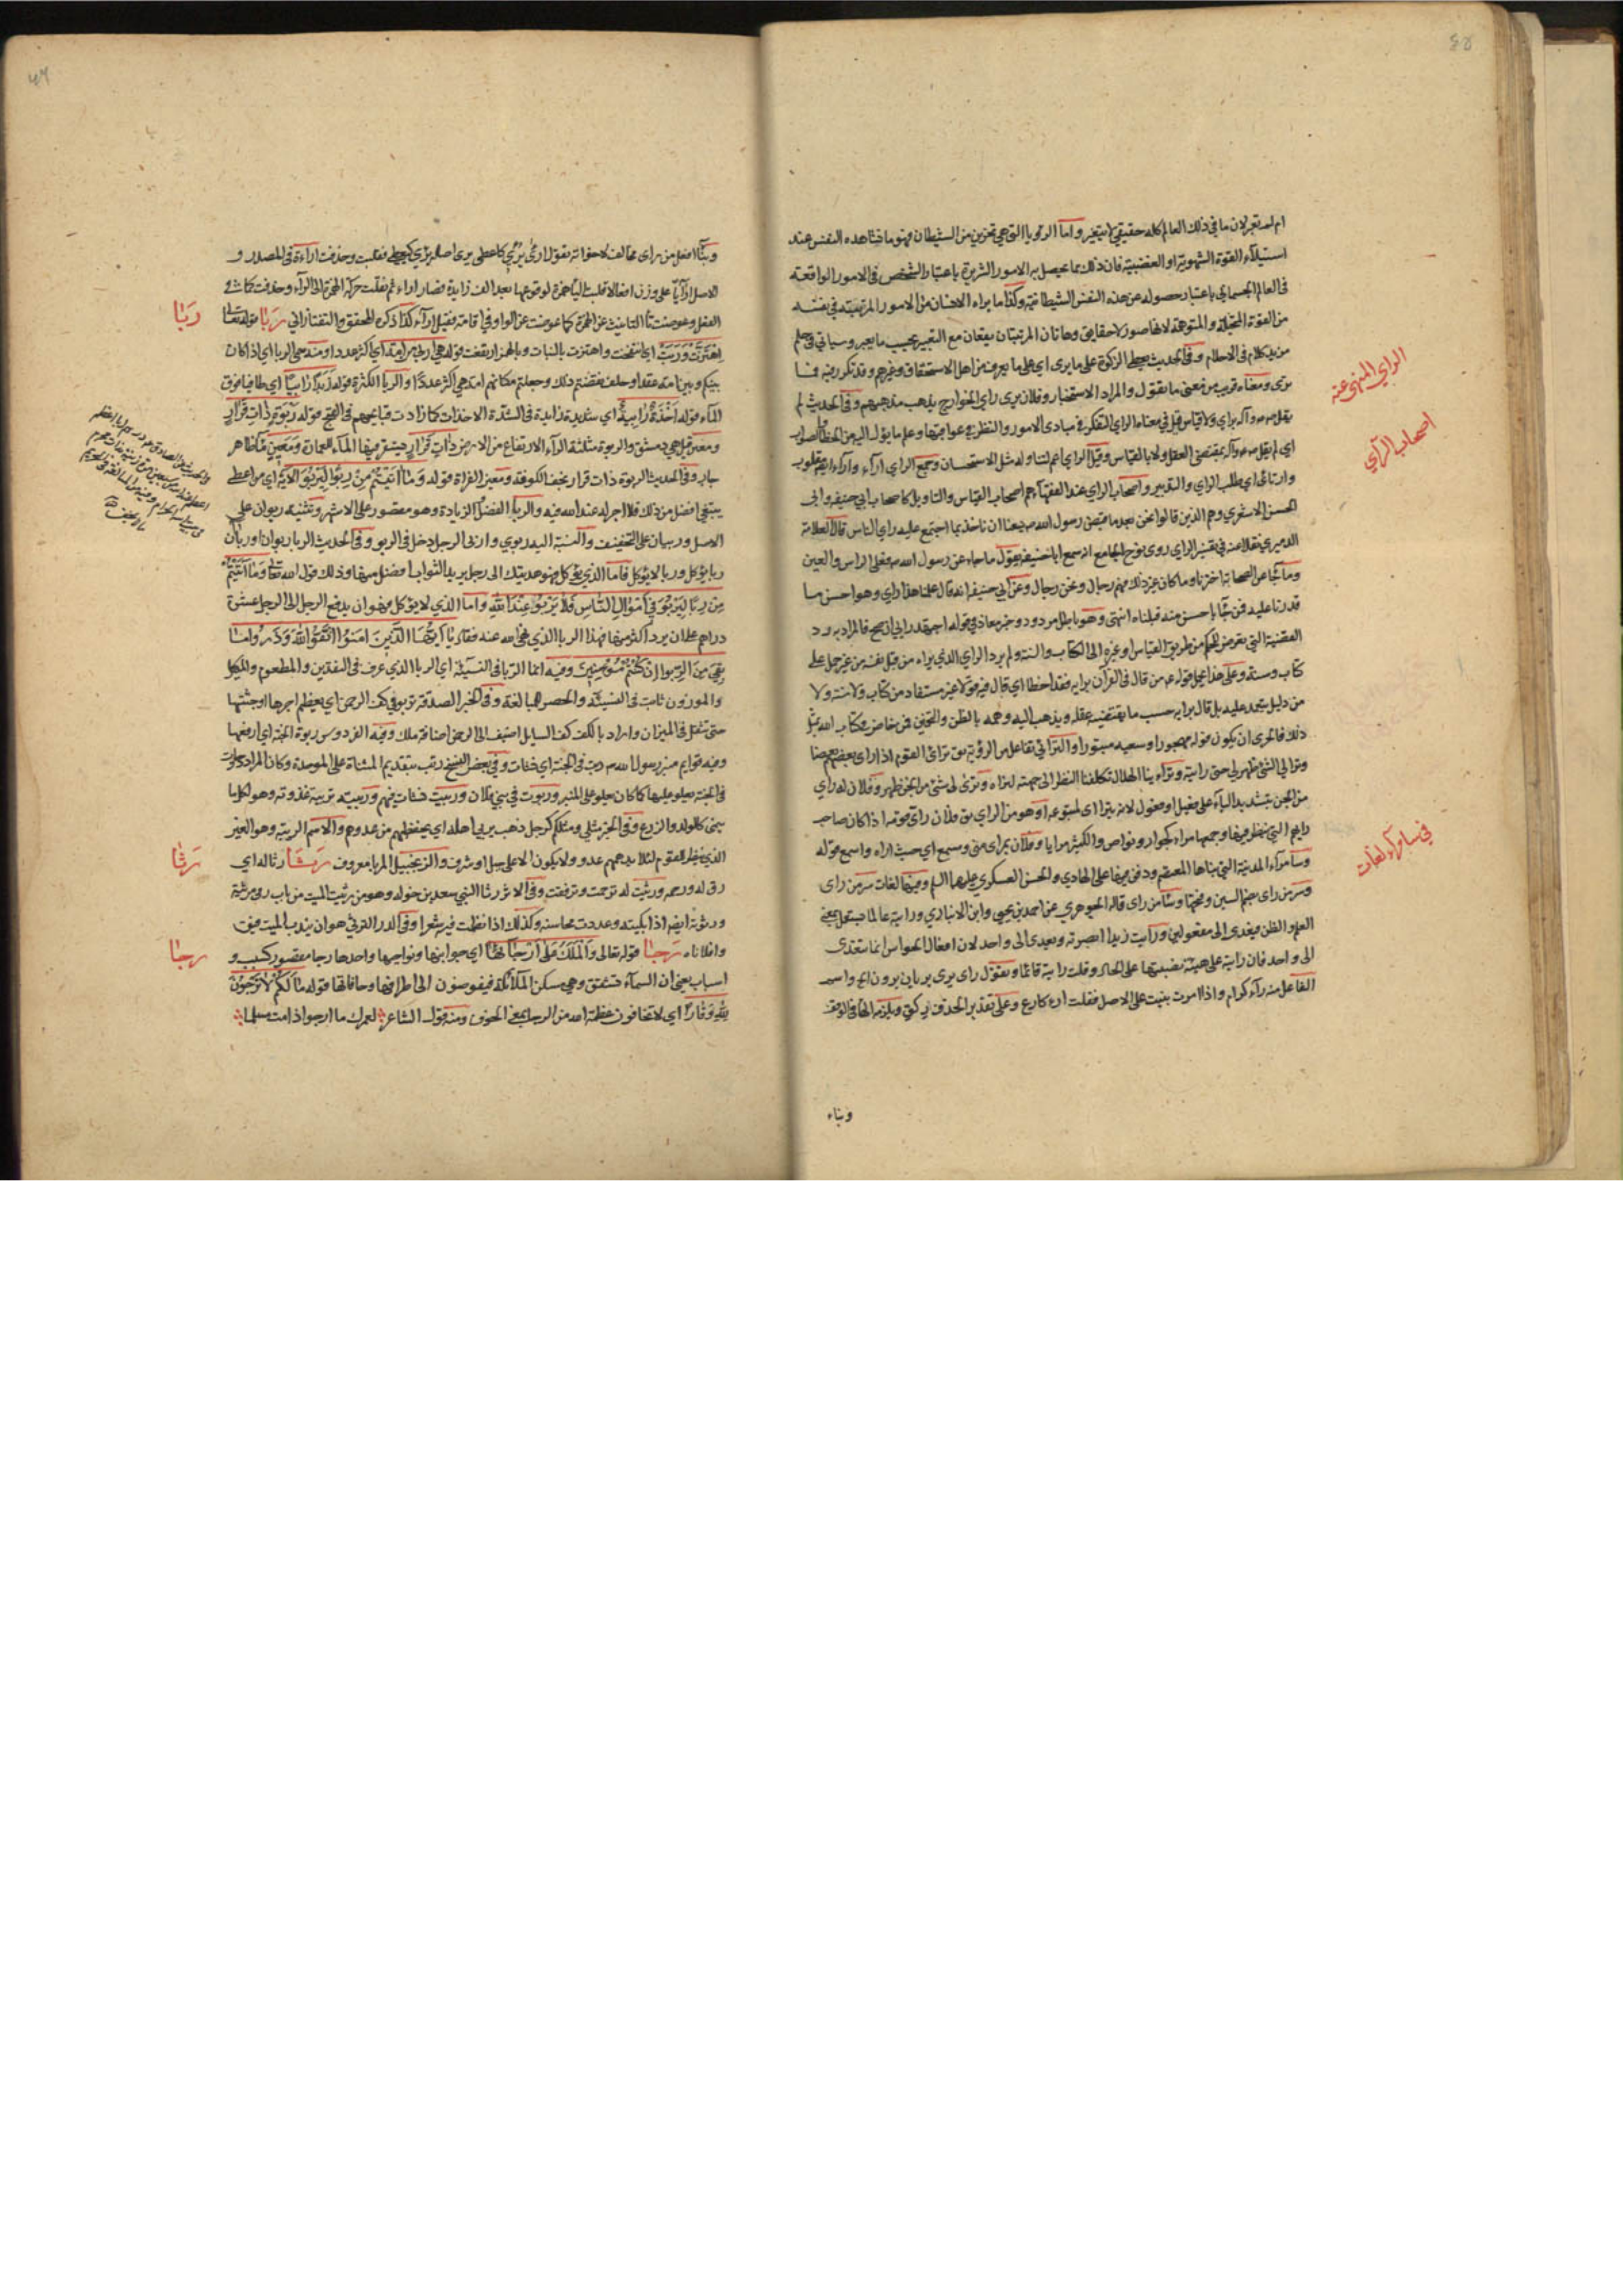 ام لم تعبر لان ما في ذلك العالم كله حقيقي لا يتغير واما الرؤيا التي هي تحزين من الشيطان فهو ما تشاهده النفس عند
استيلاء القوة الشهوية او الغضبية فان ذلك مما يحصل به الامور الشريرة باعتبار الشخص في الامور الواقعة
في العالم الجسماني باعتبار حصوله عن هذه النفس الشيطانية وكذا ما يراه الانسان من الامور المرتبة في نفسه
من القوة المتخيلة والمتوهمة لانها صور لا حقايق وهاتان المرتبتان يقعان مع التعبير بحسب ما يعبر وسياتي في حلم
من يد كلام في الاحلام وفي الحديث يعطي الزكوة على ما يرى اي على ما يعرف من اهل الاستحقاق وغيرهم وقد تكرر فيه
ترى ومعناه قريب من معنى ما تقول والمراد الاستخبار وفلان يرى راي الخوارج يذهب مذهبهم وفي الحديث لم
يقل ص براي ولا قياس قيل في معناه الراي التفكر في مبادي الامور والنظر في عواقبها وعلم ما يؤل اليه من الخطا والصواب
اي لم يقل بمقتضى العقل ولا بالقياس وقيل الراي اعم لتناوله مثل الاستحسان وجمع الراي اراء وآراء ايضا مقلوب
وارتاى اي طلب الراي والتدبير واصحاب الراي عند الفقهاء هم اصحاب القياس والتاويل كاصحاب ابي حنيفة وابي
الحسن الاشعري وهم الذين قالوا نحن بعد ما قبض رسول الله يسعنا ان ناخذ بما اجتمع عليه راي الناس قال العلامة
الدميري نقلا عنه في تفسير الراي روى نوح الجامع انه سمع ابا حنيفة يقول ما جاء عن رسول الله ص فعلى الراس والعين
وما جاء عن الصحابة اخترنا وما كان غير ذلك فهم رجال ونحن رجال وعن ابي حنيفة انه قال علمنا هذا راي وهو احسن ما
قدرنا عليه فمن جاء باحسن منه قبلناه انتهى وهو باطل مردود وخبر معاذ في قوله اجتهد رايي ان صح فالمراد به رد
القضية التي تعرض للحكم من طريق القياس او غيره الى الكتاب والسنة ولم يرد الراي الذي يراه من قبل نفسه من غير حمل على
كتاب وسنة وعلى هذا يحمل قوله ع من قال في القرآن برايه فقد اخطا اي قال فيه قولا غير مستفاد من كتاب ولا سنة ولا
من دليل يعتمد عليه بل قال برايه حسب ما يقتضيه عقله ويذهب اليه وهمه بالظن والتخمين ومن خاض في كتاب الله بمثل
ذلك فالحرى ان يكون قوله مهجورا وسعيه مبتورا والترائي تفاعل من الرؤية يق تراءى القوم اذا راى بعضهم بعضا
وترايا لي الشئ ظهر لي حتى رايته وتراءينا الهلال تكلفنا النظر الى جهته لنراه وترى لي شئ من الجن ظهر وفلان له راي
من الجن بتشديد الياء على فعيل او مفعول لانه يتراءى لمتبوعه او هو من الراي يق فلان راي قومه اذا كان صاحب
رايهم التي ينظر فيها وجمعها مراء كجوار ونواص والكثير مرايا وفلان بمراى مني ومسمع اي حيث اراه واسمع قوله
وسامراء المدينة التي بناها المعتصم ودفن فيها علي الهادي والحسن العسكري عليهما السلم وفيها لغات سر من راى
وسر من راى بضم السين وفتحها وساء من راى قاله الجوهري عن احمد بن يحيى وابن الانباري ورايته عالما يستعمل بمعنى
العلم والظن فيتعدى الى مفعولين ورايت زيدا ابصرته ويتعدى الى واحد لان افعال الحواس انما تتعدى
الى واحد فان رايته على هيئة نصبتها على الحال وقلت رايته قائما وتقول راى يرى يريان يرون الخ واسم
الفاعل منه راء كرام واذا امرت بنيت على الاصل فقلت ارء كارع وعلى تقدير الحذف ر كق ويلزمه الهاء في الوقف
وبناء
الراي المنهي عنه
اصحاب الرآي
في سامرآء لغات
وبناء افعل من راى مخالف لاخواته تقول ارى يري كاعطى يرى اصله يرئي كيعطي فقلبت وحذفت اراءة في المصدر و
الاصل ارآيا على وزن افعالا قلبت الياء همزة لوقوعها بعد الف زايدة فصار اراء ثم نقلت حركة الهمزة الى الراء وحذفت كما في
الفعل وعوضت تاء التانيث عن الهمزة كما عوضت عن الواو في اقامة فقيل اراءة كذا ذكره المحقق التفتازاني ربا قوله تعالى
اهتزت وربت اي انتفخت واهتزت بالنبات وبالهمز ارتفعت قوله هي اربى من امة اي اكثر عددا ومنه سمي الربا اي اذا كان
بينكم وبين امة عقد او حلف نقضتم ذلك وجعلتم مكانهم امة هي اكثر عددا والربا الكثرة قوله زبدا رابيا اي طافيا فوق
الماء قوله اخذة رابية اي شديدة زايدة في الشدة على الاخذات كما زادت قبايحهم في القبح قوله ربوة ذات قرار
ومعين قيل هي دمشق والربوة مثلثة الراء الارتفاع من الارض ذات قرار يستقر فيها الماء للعمارة ومعين ماء ظاهر
جار وفي الحديث الربوة ذات قرار نجف الكوفة ومعين الفراة قوله وما آتيتم من ربوا ليربو الاية اي من اعطى
يبتغي افضل من ذلك فلا اجر له عند الله فيه والربا الفضل والزيادة وهو مقصور على الاشهر وتثنيته ربوان على
الاصل وربيان على التخفيف والنسبة اليه ربوي واربى الرجل دخل في الربو وفي الحديث الربا ربوان او ربان
ربا يؤكل وربا لا يؤكل فاما الذي يؤكل فهو هديتك الى رجل يريد الثواب افضل منها وذلك قول الله تعالى وما آتيتم
من ربا ليربو في اموال الناس فلا يربوا عند الله واما الذي لا يؤكل فهو ان يدفع الرجل الى الرجل عشرة
دراهم على ان يرد اكثر منها فهذا الربا الذي نهى الله عنه فقال يا ايها الذين امنوا اتقوا الله وذروا ما
بقي من الربوا ان كنتم مؤمنين وفيه انما الربا في النسيئة اي الربا الذي عرف في النقدين والمطعوم والمكيل
والموزون ثابت في النسيئة والحصر للمبالغة وفي الخبر الصدقة تربو في كف الرحمن اي يعظم اجرها او جثتها
حتى تثقل في الميزان واراد بالكف كف السايل اضيف الى الرحمن اضافة ملك وفيه الفردوس ربوة الجنة اي ارفعها
وفيه قوايم منبر رسول الله ص ربت في الجنة اي نشات وفي بعض النسخ رتب بتقديم المثناة على الموحدة وكان المراد درجات
في الجنة يعلو عليها كما كان يعلو على المنبر وربوت في بني فلان وربيت نشات فيهم وربيته تربية غذوته وهو لكل ما
ينمى كالولد والزرع وفي الخبر مثلي ومثلكم كرجل ذهب يربأ اهله اي يحفظهم من عدوهم والاسم الربيئة وهو العين
الذي ينظر للقوم لئلا يدهمهم عدو ولا يكون الا على جبل او شرف والزنجبيل المربا معروف رثا رثا له اي
رق له ورحمه ورثيت له ترحمت وترفقت وفي الاثر رثا النبي سعد بن خوله وهو من رثيت الميت من باب رمى مرثية
ورثوته ايضا اذا بكيته وعددت محاسنه وكذلك اذا نظمت فيه شعرا وفي الدر الترثي هو ان يندب الميت فيق
وافلاناه رجا قوله تعالى والملك على ارجائها اي جوانبها ونواحيها واحدها رجا مقصور كسبب و
اسباب يعني ان السماء تتشقق وهي مسكن الملائكة فيفيضون الى اطرافها وحافاتها قوله ما لكم لا ترجون
لله وقارا اي لا تخافون عظمة الله من الرجا بمعنى الخوف ومنه قول الشاعر لعمرك ما ارجوا اذا مت مسلما
ربا
رثا
رجا